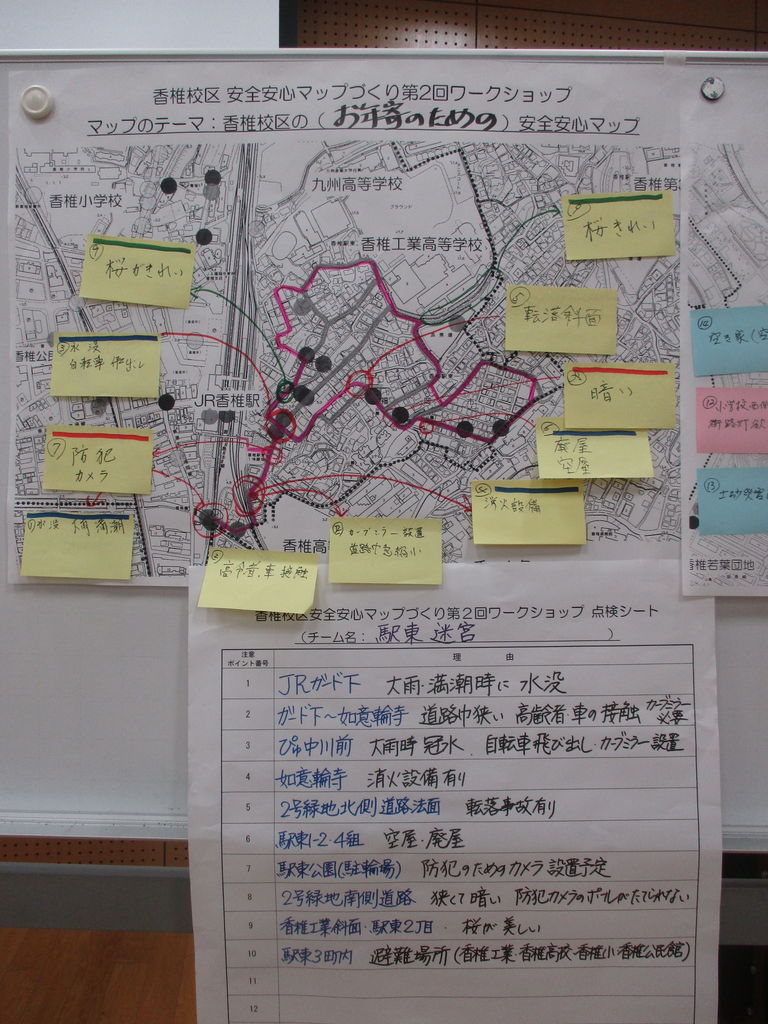 香椎校区 安全安心マップづくり第2回ワークショップ
マップのテーマ：香椎校区の（お年寄のための）安全安心マップ
香椎小学校
九州高等学校
グラウンド
香椎工業高等学校
香椎第3
JR香椎駅
香椎公
香椎高
香椎若葉団地
⑨
桜がきれい
桜きれい
③水没
自転車飛出し
⑤
転落斜面
⑧
暗い
⑦
防犯
カメラ
⑥
廃屋
空屋
④
消火設備
①水没 大雨満潮
②
カーブミラー設置
道路巾急縮小
②
高令者、車接触
⑭
空き家（空
⑫小学校西側
街路灯欲
⑬
土砂災害
香椎校区安全安心マップづくり第2回ワークショップ 点検シート
（チーム名： 駅東迷宮 ）
注意
ポイント番号
理 由
1 JRガード下 大雨・満潮時に 水没
2 ガード下～如意輪寺 道路巾狭い 高齢者・車の接触 カーブミラー必要
3 ぴゅ中川前 大雨時 冠水、自転車飛び出し・カーブミラー設置
4 如意輪寺 消火設備有り
5 2号緑地北側道路法面 転落事故有り
6 駅東1-2・4組 空屋・廃屋
7 駅東公園(駐輪場) 防犯のためのカメラ設置予定
8 2号緑地南側道路 狭くて暗い 防犯カメラのポールがたてられない
9 香椎工業斜面・駅東2丁目・ 桜が美しい
10 駅東3町内 避難場所(香椎工業・香椎高校・香椎小・香椎公民館)
11
12